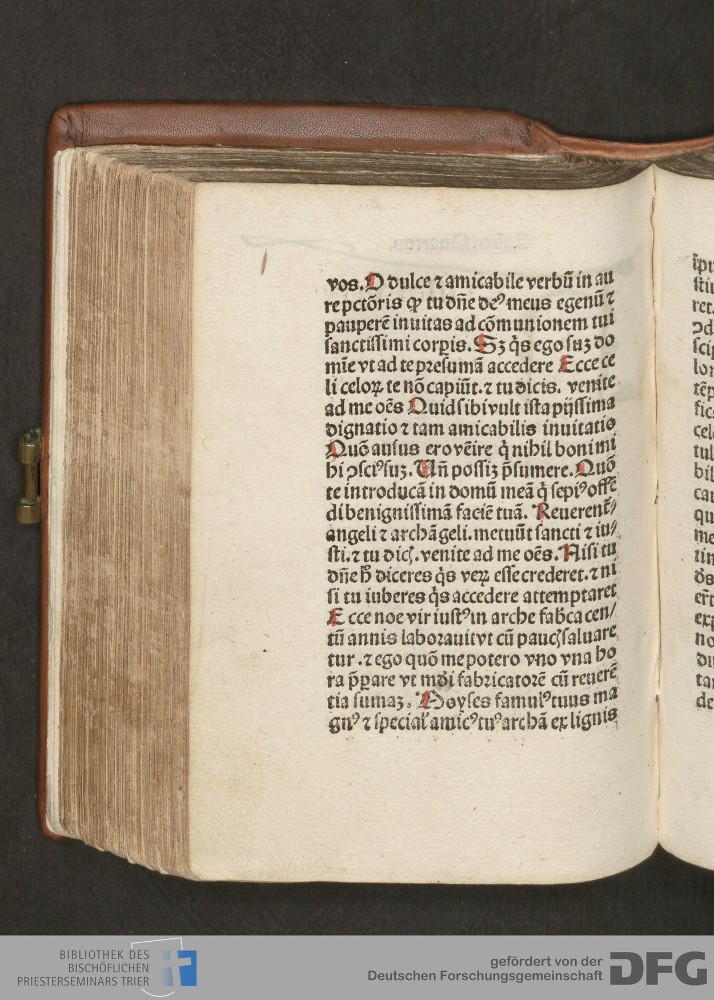 vos. O dulce ⁊ amicabile verbū in au
re pctōris ꝙ tu dn̄e deꝰ meus egenū ⁊
pauperē inuitas ad cōmunionem tui
sanctissimi corpris. Sꝫ q̄s ego suꝫ do
mīe vt ad te presumā accedere Ecce ce
li celoꝝ te nō capiūt. ⁊ tu dicis. venite
ad me oēs Quid sibi vult ista pijssima
dignatio ⁊ tam amicabilis inuitatio
Quō ausus ero vēire q̄ nihil boni mi
hi ↄsciꝰ suꝫ. Un̄ possiꝫ p̄sumere. Quō
te introducā in domū meā q̄ sepiꝰ offē
di benignissimā faciē tuā. Reuerent̄/
angeli ⁊ archāgeli. metuūt sancti ⁊ iu/
sti. ⁊ tu dicꝭ. venite ad me oēs. Nisi tu
dn̄e h̄ diceres q̄s veꝝ esse crederet. ⁊ ni
si tu iuberes q̄s accedere attemptaret
Ecce noe vir iustꝰ in arche fab̄ca cen/
tū annis laborauit vt cū paucꝭ saluare
tur. ⁊ ego quō me potero vno vna ho
ra p̄ꝑare vt mōi fabricatorē cū reuerē
tia sumaꝫ. Moyses famulꝰ tuus ma
gnꝰ ⁊ special̄ amicꝰ tuꝰ archā ex lignis
ipu
stiu
ret.
ↄd
scip
lor
tēp
fic
cel
tul
bil
cau
qu
me
tin
exp
no
du
tar
de
BIBLIOTHEK DES
BISCHÖFLICHEN
PRIESTERSEMINARS TRIER
gefördert von der
Deutschen Forschungsgemeinschaft
DFG